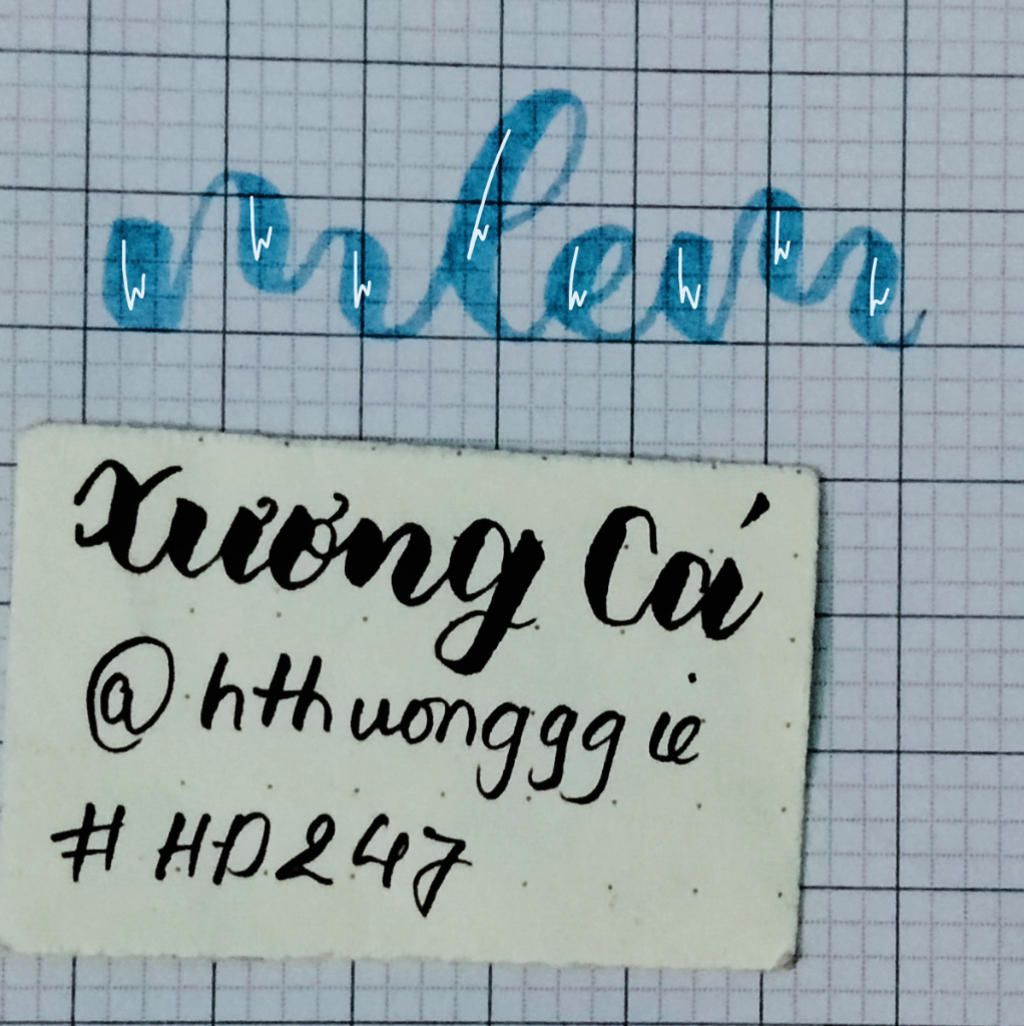 mlem
Xương Cá
@hthuongggie
#HD247